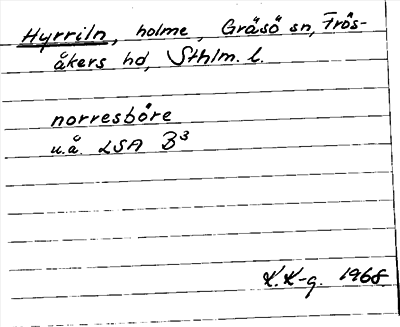 Hyrriln, holme, Gräsö sn, Frös-
åkers hd, Sthlm. l.
norresbåre
u.å. LSA B³
K.K-g. 1968.